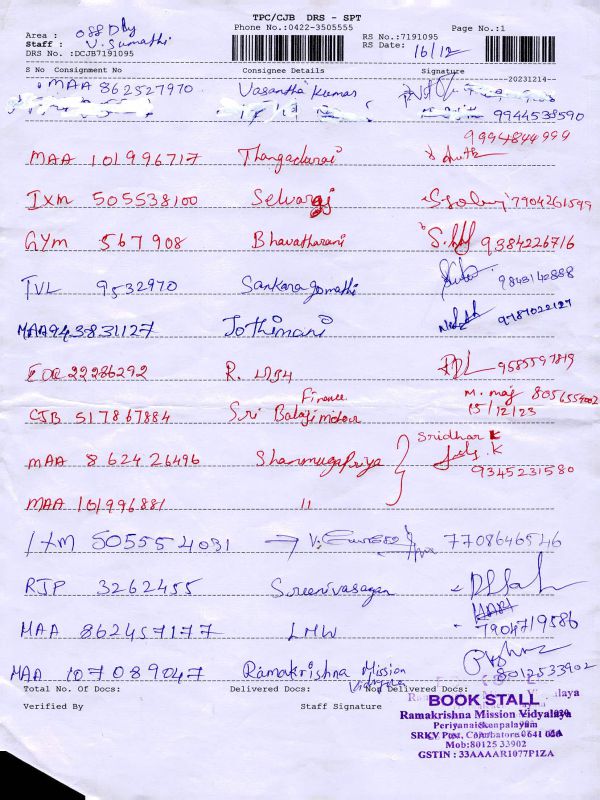 TPC/CJB DRS - SPT
Phone No.:0422-3505555 Page No.:1
Area : Off Dly
Staff : V. Sumathi
DRS No. :DCJB7191095
RS No.:7191095
RS Date: 16/12
S No Consignment No Consignee Details Signature
20231214
MAA 862527970 Vasantha Kumar
9944538590
9994844999
MAA 101996717 Thangadurai
IXM 505538100 Selvaraj 7904261599
GYM 567908 Bhavatharani 9384226716
TVL 9532970 Sankara gomathi 9843142888
MAA943831127 Jothimani 9787022127
22286292 R. 9585597819
CJB 517867884 Sri Balaji motor Finance M. 8056554002
15/12/23
MAA 862426496 Shanmugapriya Sridhar K
9345231580
MAA 101996881 "
IXM 505554031 7708646546
RJP 3262455 Sreenivasagan
MAA 862457177 LMW 7904719586
MAA 107089047 Ramakrishna Mission Vidyala 8012533902
Total No. Of Docs: Delivered Docs: Non Delivered Docs:
Verified By Staff Signature
BOOK STALL
Ramakrishna Mission Vidyalaya
Periyanaickenpalayam
SRKV Post, Coimbatore 641 020
Mob:80125 33902
GSTIN : 33AAAAR1077P1ZA